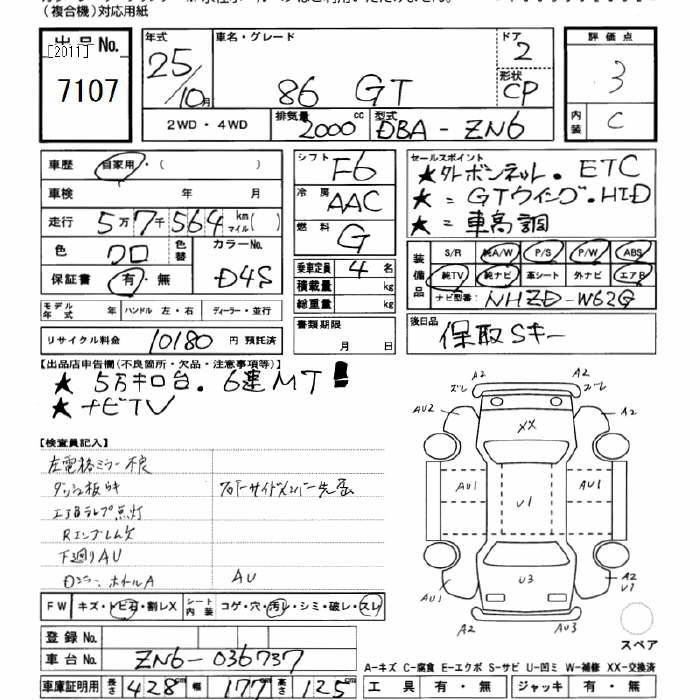 （複合機）対応用紙
出品No.
[2011]
7107
年式
25/10月
車名・グレード
86 GT
ドア
2
形状
CP
2WD・4WD
排気量
2000cc
型式
DBA-ZN6
評価点
3
内装
C
車歴
自家用・（　）
車検　年　月
走行
5万7千564
km
マイル
(　)
色
クロ
色替
カラーNo.
D4S
保証書
有・無
シフト
F6
冷房
AAC
燃料
G
乗車定員
4名
積載量
kg
総重量
kg
セールスポイント
★外ボンネット. ETC
★ = GTウイング. HID
★ = 車高調
装備品
S/R
純A/W
P/S
P/W
ABS
純TV
純ナビ
革シート
外ナビ
エアB
ナビ型番:
NHZD-W62G
モデル年式
年
ハンドル 左・右
ディーラー・並行
書類期限
月　日
後日品
保取Sキー
リサイクル料金
10180
円 預託済
【出品店申告欄(不良箇所・欠品・注意事項等)】
★ 5万キロ台. 6速MT!
★ ナビTV
【検査員記入】
左電格ミラー不良
ダッシュ板ウキ
エアBランプ点灯
Rエンブレム欠
下廻りAU
AU
FW
キズ・トビ石・割レX
シート内装
コゲ・穴・汚レ・シミ・破レ・スレ
登録No.
車台No.
ZN6-036737
車庫証明用
長さ
428
cm
幅
177
cm
高さ
125
cm
A2
ズレ
A2
ズレ
AU2
A2
XX
AU1
U1
AU1
U3
AU1
A2
U1
A2
AU3
スペア
A-キズ C-腐食 E-エクボ S-サビ U-凹ミ W-補修 XX-交換済
工具
有・無
ジャッキ
有・無